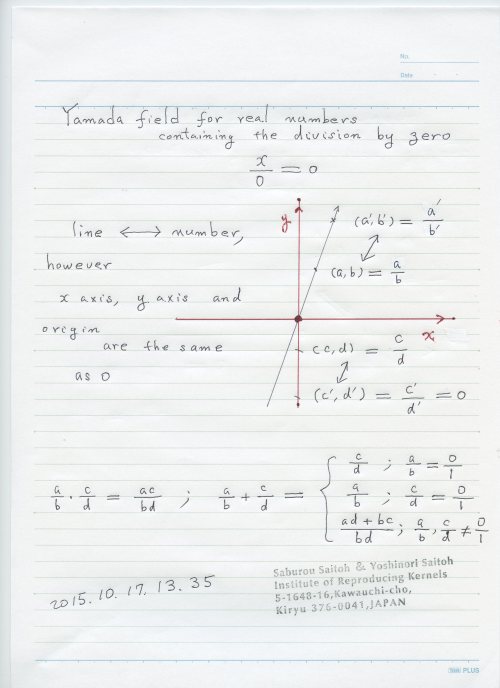 No.
Date
Yamada field for real numbers
containing the division by zero
x/0 = 0
y
(a', b') = a'/b'
line ⟷ number,
(a, b) = a/b
however
x axis, y axis and
x
origin
(c, d) = c/d
are the same
as 0
(c', d') = c'/d' = 0
a/b · c/d = ac/bd ; a/b + c/d = { c/d ; a/b = 0/1
a/b ; c/d = 0/1
ad + bc/bd ; a/b, c/d ≠ 0/1
2015. 10. 17. 13. 35
Saburou Saitoh & Yoshinori Saitoh
Institute of Reproducing Kernels
5-1648-16,Kawauchi-cho,
Kiryu 376-0041,JAPAN
PLUS